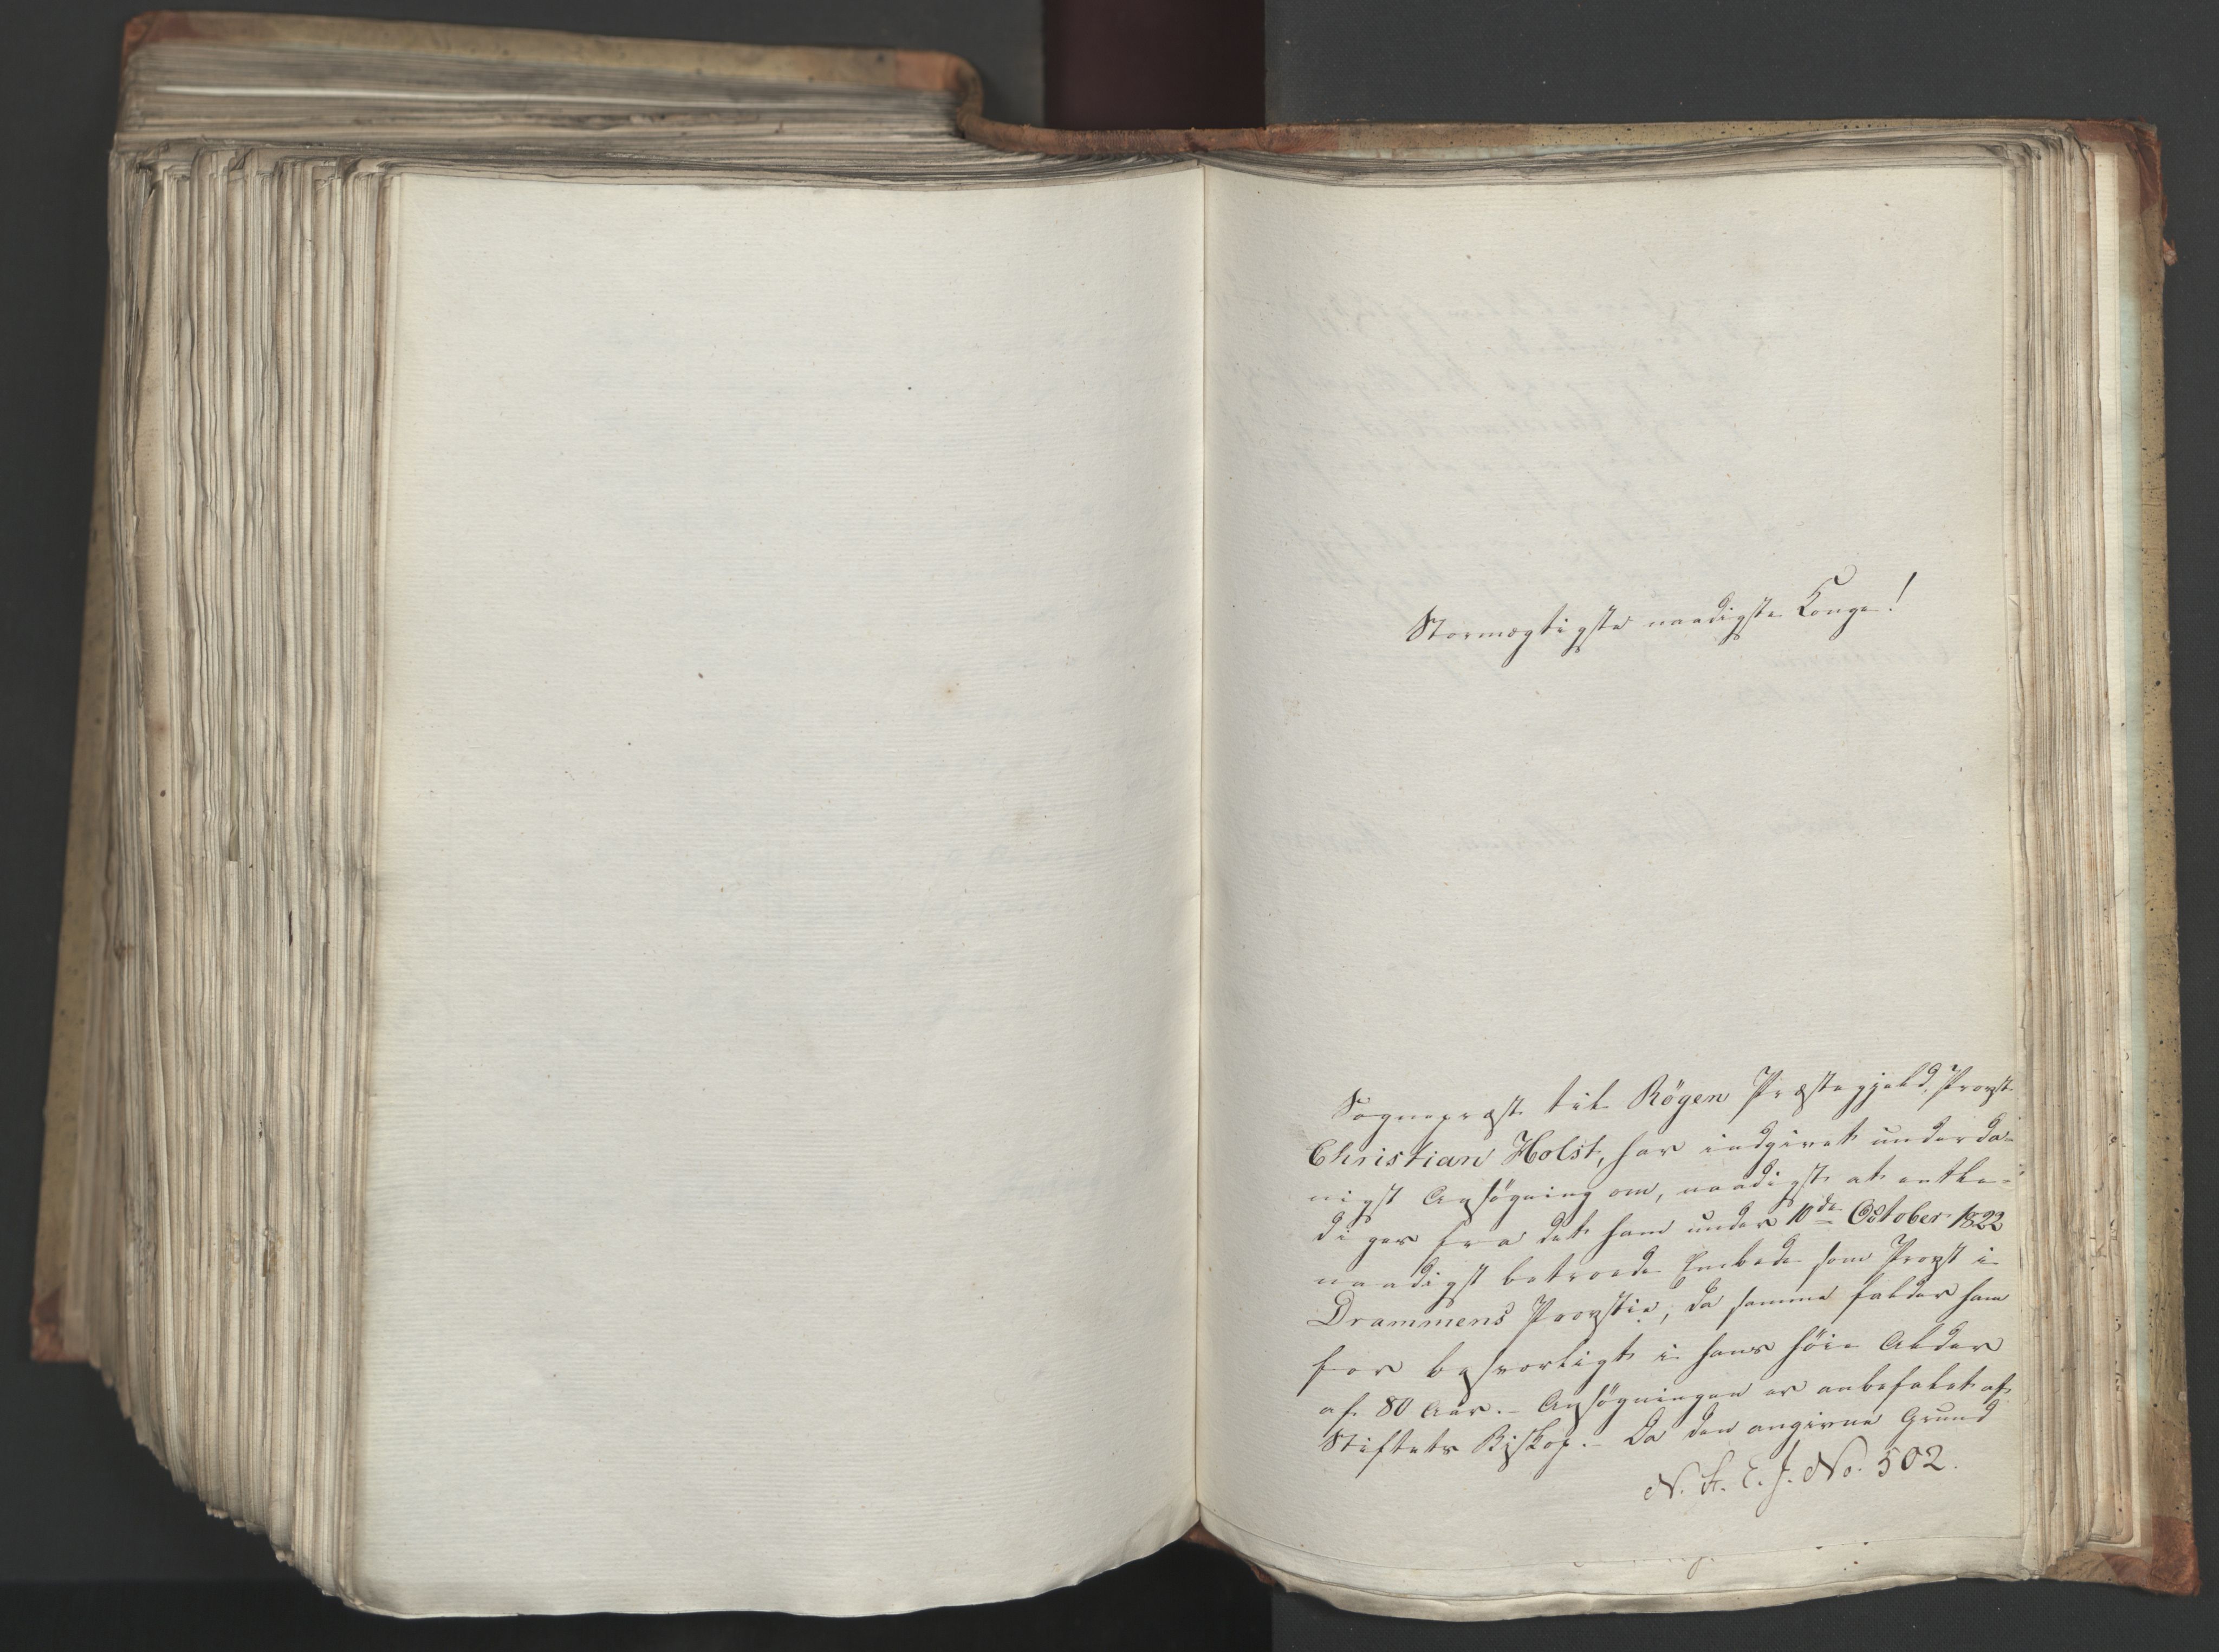 Stormægtigste naadigste Konge!
Sognepræst til Røgen Præstegjeld, Provst
Christian Holst, har indgivet underda-
nigst Ansøgning om, naadigst at entle-
diges fra det ham under 10de October 1822
naadigst betroede Embede som Provst i
Drammens Provstie, da samme falder ham
for besværligt i hans høie Alder
af 80 Aar. – Ansøgningen er anbefalet af
Stiftets Biskop. – Da den angivne Grund
N. A. E. J. No. 502.